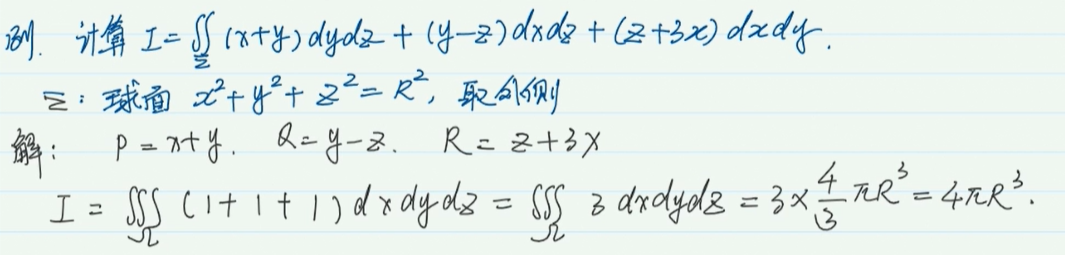 例. 计算 I=∯_Σ (x+y)dydz + (y-z)dxdz + (z+3x)dxdy.
Σ: 球面 x²+y²+z²=R², 取外侧
解: P=x+y. Q=y-z. R=z+3x
I = ∭_Ω (1+1+1)dxdydz = ∭_Ω 3dxdydz = 3×4/3 πR³ = 4πR³.